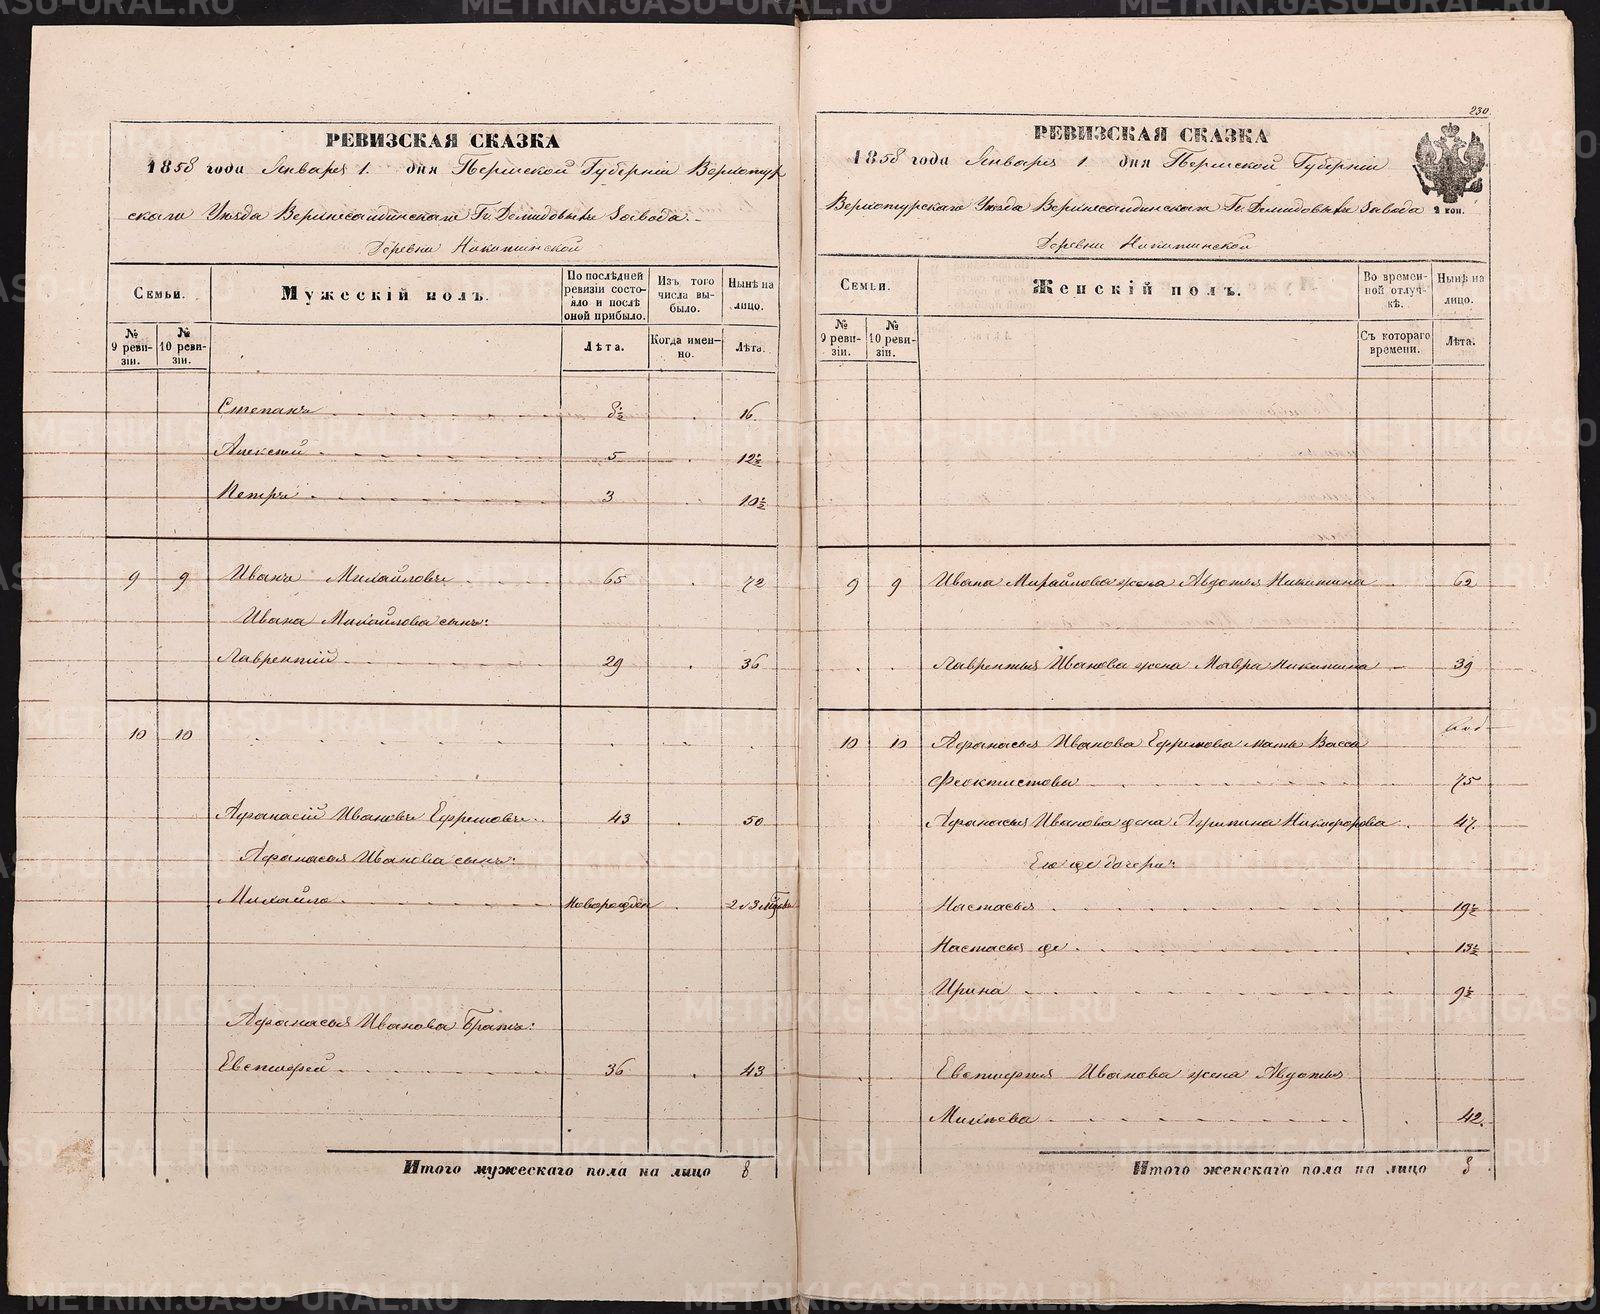 РЕВИЗСКАЯ СКАЗКА
1858 года Января 1. дня Пермской Губерніи Верхотур
скаго Уѣзда Верхнесалдинскаго Гг. Демидовыхъ Завода
Деревни Никитинской
Семьи.
Мужескій полъ.
По послѣдней ревизіи состояло и послѣ оной прибыло.
Изъ того числа выбыло.
Нынѣ на лицо.
№ 9 ревизіи.
№ 10 ревизіи.
Лѣта.
Когда именно.
Лѣта.
Степанъ 8½ 16
Алексѣй 5 12½
Петръ 3 10½
9 9 Иванъ Михайловъ 65 72
Ивана Михайлова сынъ:
Лаврентій 29 36
10 10
Афанасій Ивановъ Ефремовъ 43 50
Афанасья Иванова сынъ:
Михайло Новорожден 2 и 3
Афанасья Иванова Братъ:
Евстифей 36 43
Итого мужескаго пола на лицо 8
230
РЕВИЗСКАЯ СКАЗКА
1858 года Января 1 дня Пермской Губерніи
Верхотурскаго Уѣзда Верхнесалдинскаго Гг. Демидовыхъ Завода
2 коп.
Деревни Никитинской
Семьи.
Женскій полъ.
Во временной отлучкѣ.
Нынѣ на лицо.
№ 9 ревизіи.
№ 10 ревизіи.
Съ котораго времени.
Лѣта.
9 9 Ивана Михайлова жена Авдотья Никитина 62
Лаврентья Иванова жена Мавра Никитина 39
10 10 Афанасья Иванова Ефремова мать Васса
Феоктистова 75
Афанасья Иванова жена Агрипина Никифорова 47.
Ево же дочери:
Настасья 19½
Настасья же 13½
Ирина 9½
Евстифея Иванова жена Авдотья
Михѣева 42.
Итого женскаго пола на лицо 8
METRIKI.GASO-URAL.RU